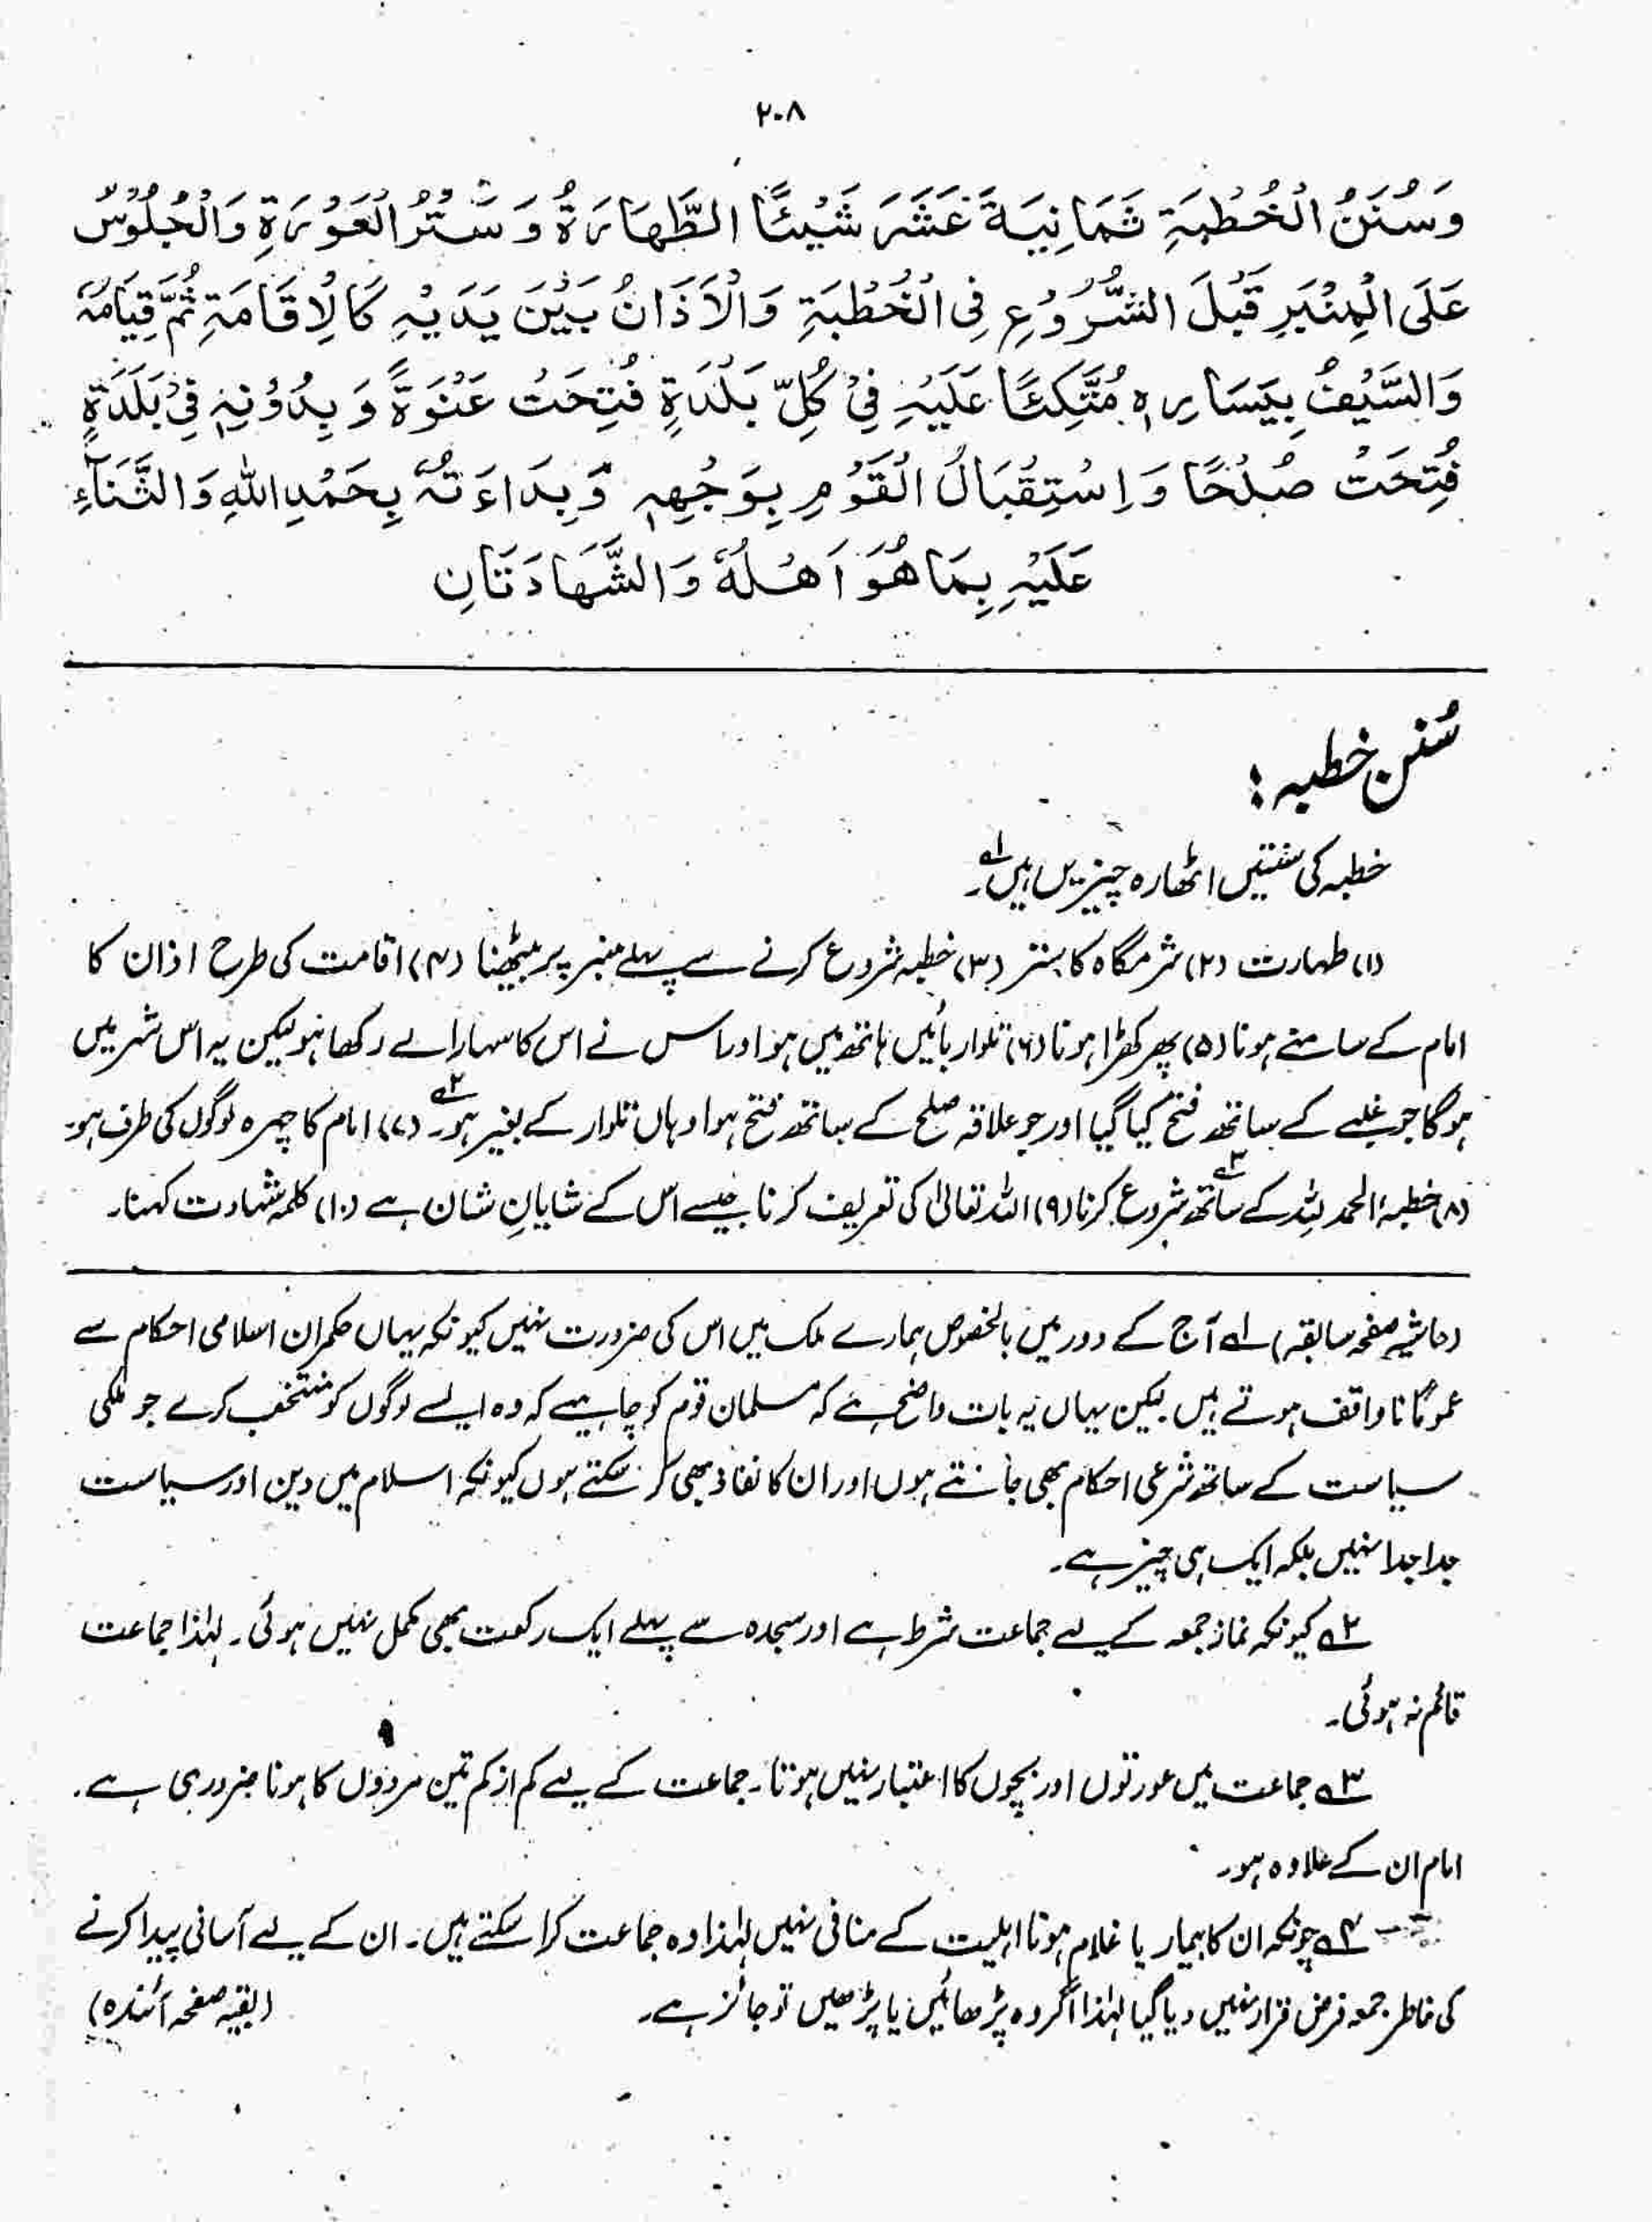 ۲۰۸
وَسُنَنُ الْخُطْبَةِ ثَمَانِيَةَ عَشَرَ شَيْئًا الطَّهَارَةُ وَسَتْرُ الْعَوْرَةِ وَالْجُلُوْسُ
عَلَى الْمِنْبَرِ قَبْلَ الشُّرُوْعِ فِى الْخُطْبَةِ وَالْاَذَانُ بَيْنَ يَدَيْهِ كَالْاِقَامَةِ ثُمَّ قِيَامُهٗ
وَالسَّيْفُ بِيَسَارِهٖ مُتَّكِئًا عَلَيْهِ فِىْ كُلِّ بَلْدَةٍ فُتِحَتْ عَنْوَةً وَبِدُوْنِهٖ فِىْ بَلْدَةٍ
فُتِحَتْ صُلْحًا وَاِسْتِقْبَالُ الْقَوْمِ بِوَجْهِهٖ وَبِدَاءَتُهٗ بِحَمْدِ اللّٰهِ وَالثَّنَاءِ
عَلَيْهِ بِمَا هُوَ اَهْلُهٗ وَالشَّهَادَتَانِ
سُنن خطبہ:
خطبہ کی سنتیں اٹھارہ چیزیں ہیں۔ ۱ے
(۱) طہارت (۲) شرمگاہ کا ستر (۳) خطبہ شروع کرنے سے پہلے منبر پر بیٹھنا (۴) اقامت کی طرح اذان کا
امام کے سامنے ہونا (۵) پھر کھڑا ہونا (۶) تلوار بائیں ہاتھ میں ہو اور اس نے اس کا سہارا لے رکھا ہو لیکن یہ اس شہر میں
ہوگا جو غلبے کے ساتھ فتح کیا گیا اور جو علاقہ صلح کے ساتھ فتح ہوا وہاں تلوار کے بغیر ہو۔ ۲ے (۷) امام کا چہرہ لوگوں کی طرف ہو۔
(۸) خطبہ الحمد للہ کے ساتھ شروع کرنا ۳ے (۹) اللہ تعالیٰ کی تعریف کرنا جیسے اس کے شایانِ شان ہے (۱۰) کلمہ شہادت کہنا۔
(حاشیہ صفحہ سابقہ) ۱ے آج کے دور میں بالخصوص ہمارے ملک میں اس کی ضرورت نہیں کیونکہ یہاں حکمران اسلامی احکام سے
عموماً ناواقف ہوتے ہیں لیکن یہاں یہ بات واضح ہے کہ مسلمان قوم کو چاہیے کہ وہ ایسے لوگوں کو منتخب کرے جو ملکی
سیاست کے ساتھ شرعی احکام بھی جانتے ہوں اور ان کا نفاذ بھی کر سکتے ہوں کیونکہ اسلام میں دین اور سیاست
جدا جدا نہیں بلکہ ایک ہی چیز ہے۔
۲ے کیونکہ نماز جمعہ کے لیے جماعت شرط ہے اور سجدہ سے پہلے ایک رکعت بھی مکمل نہیں ہوئی۔ لہٰذا جماعت
قائم نہ ہوئی۔
۳ے جماعت میں عورتوں اور بچوں کا اعتبار نہیں ہوتا۔ جماعت کے لیے کم از کم تین مردوں کا ہونا ضروری ہے۔
امام ان کے علاوہ ہو۔
۴ے چونکہ ان کا بیمار یا غلام ہونا اہلیت کے منافی نہیں لہٰذا وہ جماعت کرا سکتے ہیں۔ ان کے لیے آسانی پیدا کرنے
کی خاطر جمعہ فرض قرار نہیں دیا گیا لہٰذا اگر وہ پڑھائیں یا پڑھیں تو جائز ہے۔ (بقیہ صفحہ آئندہ)